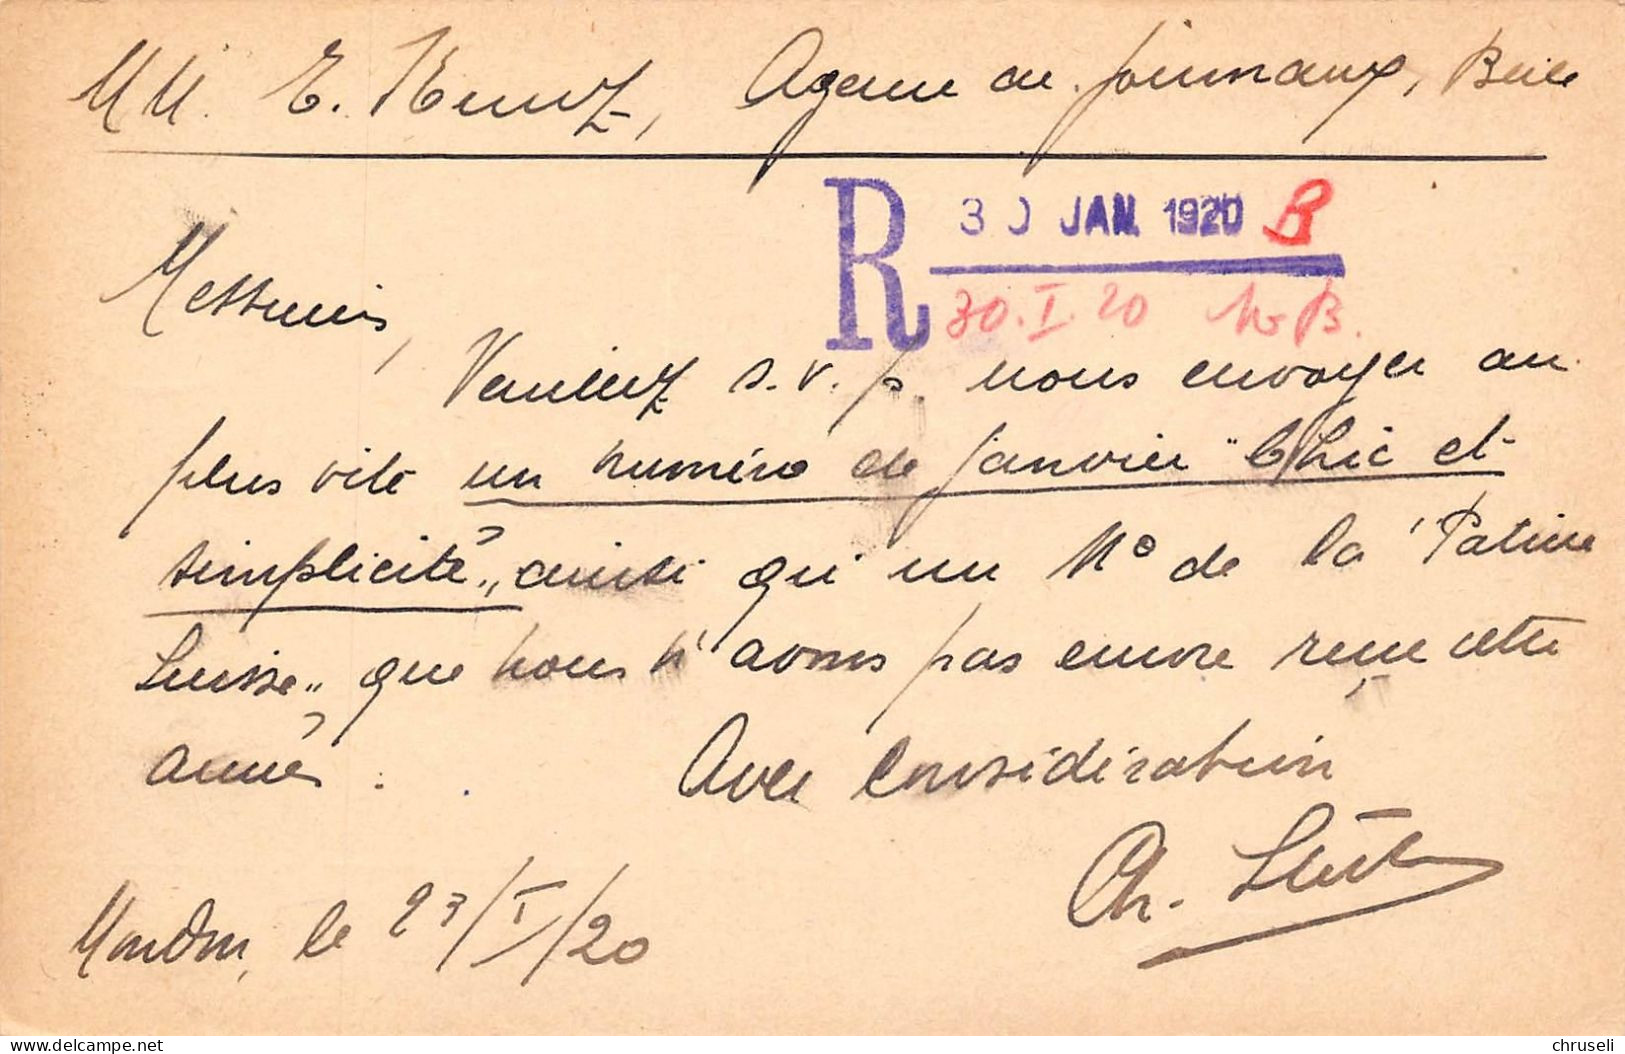 MM. E. Kunz, Agence de journaux, Berne
R 30 JAN. 1920 B
30. I. 20
Messieurs,
Veuillez s. v. p. nous envoyer au
plus vite un numéro de janvier "Chic et
simplicité", ainsi qui un No de la "Patrie
Suisse", que nous n'avons pas encore reçu cette
année. Avec considération
Moudon, le 23/I/20 Ch.
hipostcard.com